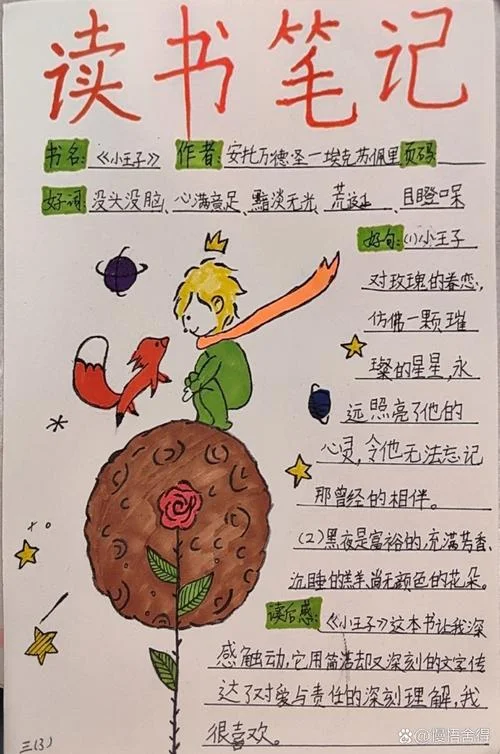 读书笔记
书名:《小王子》 作者:安托万德圣一埃克苏佩里 页码
好词:没头没脑、心满意足、黯淡无光、荒诞 目瞪口呆
好句:(1)小王子
对玫瑰的眷恋,
仿佛一颗璀
璨的星星,永
远照亮了他的
心灵,令他无法忘记
那曾经的相伴。
(2)黑夜是富裕的,充满芳香,
沉睡的羔羊尚无颜色的花朵。
读后感:《小王子》这本书让我深
感触动,它用简洁却又深刻的文字传
达了对爱与责任的深刻理解,我
很喜欢。
三(3)
慢悟舍得